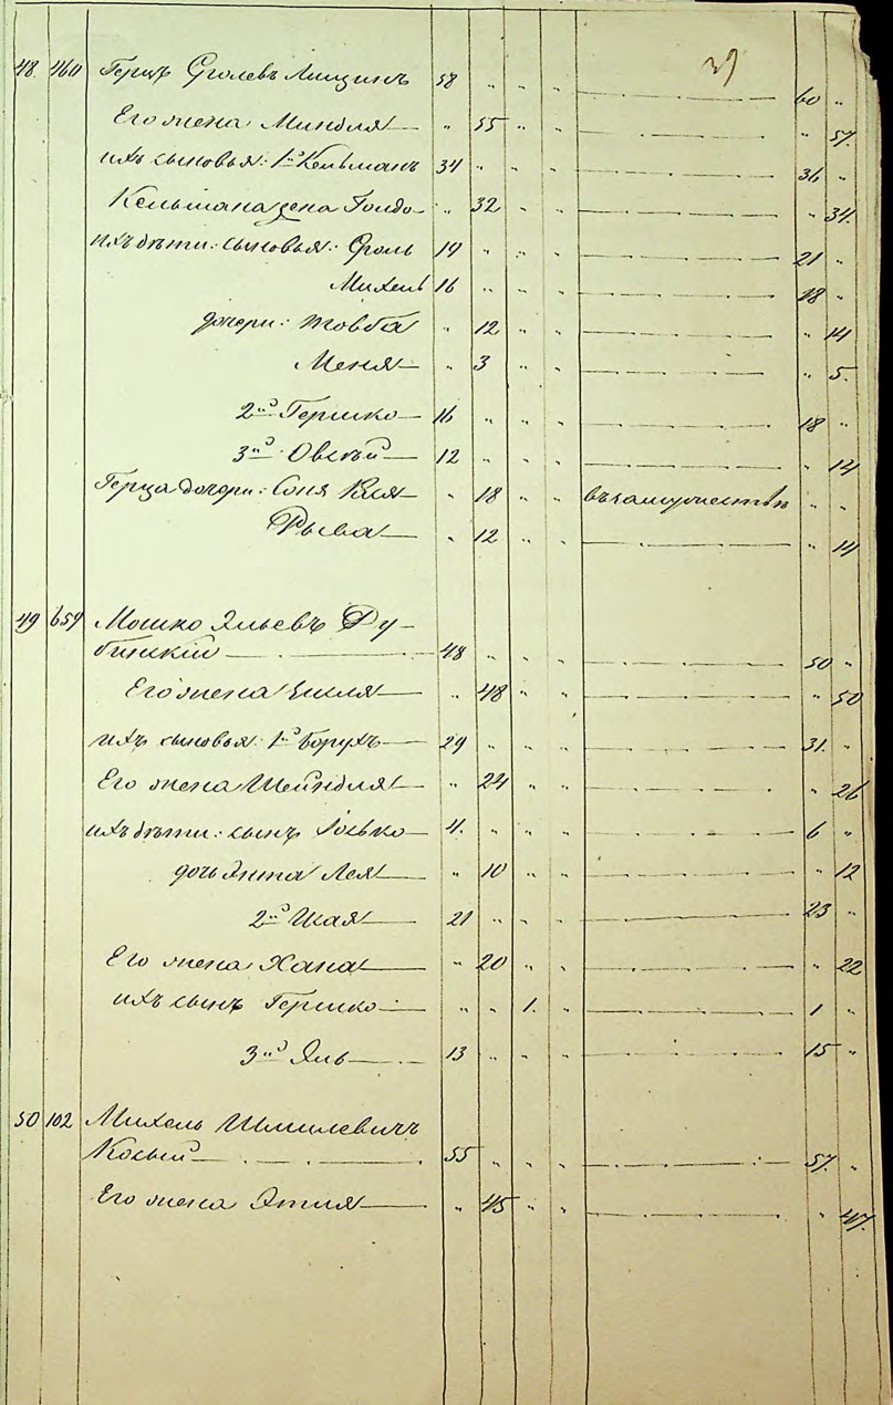 39
48 460 Герцъ Сролевъ Липщинъ 58 „ „ „ — · — · — 60 „
Его жена Миндля — „ 55 „ „ — · — · — „ 57.
ихъ сыновья: 1й Кельманъ 34 „ „ „ — · — · — 36 „
Кельмана жена Голдо — „ 32 „ „ — · — · — „ 34.
ихъ дѣти: сыновья: Сроль 19 „ „ „ — · — · — 21 „
Михель 16 „ „ „ — · — · — 18 „
дочери: Товба „ 12 „ „ — · — · — „ 14
Меня — „ 3 „ „ — · — · — „ 5.
2й Гершко — 16 „ „ „ — · — · — 18 „
3й Овсѣй — 12 „ „ „ — · — · — „ 14
Герца дочери: Соня Хая — „ 18 „ „ въ замужествѣ „ „
Рыва — „ 12 „ „ — · — · — „ 14
49 659 Мошко Эльевъ Ду-
бинскій — · — 48 „ „ „ — · — · — 50 „
Его жена — „ 48 „ „ — · — · — „ 50
ихъ сыновья: 1й Борухъ — 29 „ „ „ — · — · — 31. „
Его жена Шейндля — „ 24 „ „ — · — · — „ 26
ихъ дѣти: сынъ Іосько — 4. „ „ „ — · — · — 6 „
дочь Энта Лея — „ 10 „ „ — · — · — „ 12
2й Шая — 21 „ „ „ — · — · — 23 „
Его жена Хана — „ 20 „ „ — · — · — „ 22
ихъ сынъ Гершко — „ „ 1. „ — · — · — 1 „
3й Эль — 13 „ „ „ — · — · — 15 „
50 102 Михель Шмилевичъ
Косый — · — 55 „ „ „ — · — · — 57. „
Его жена Этля — „ 45 „ „ — · — · — „ 47.